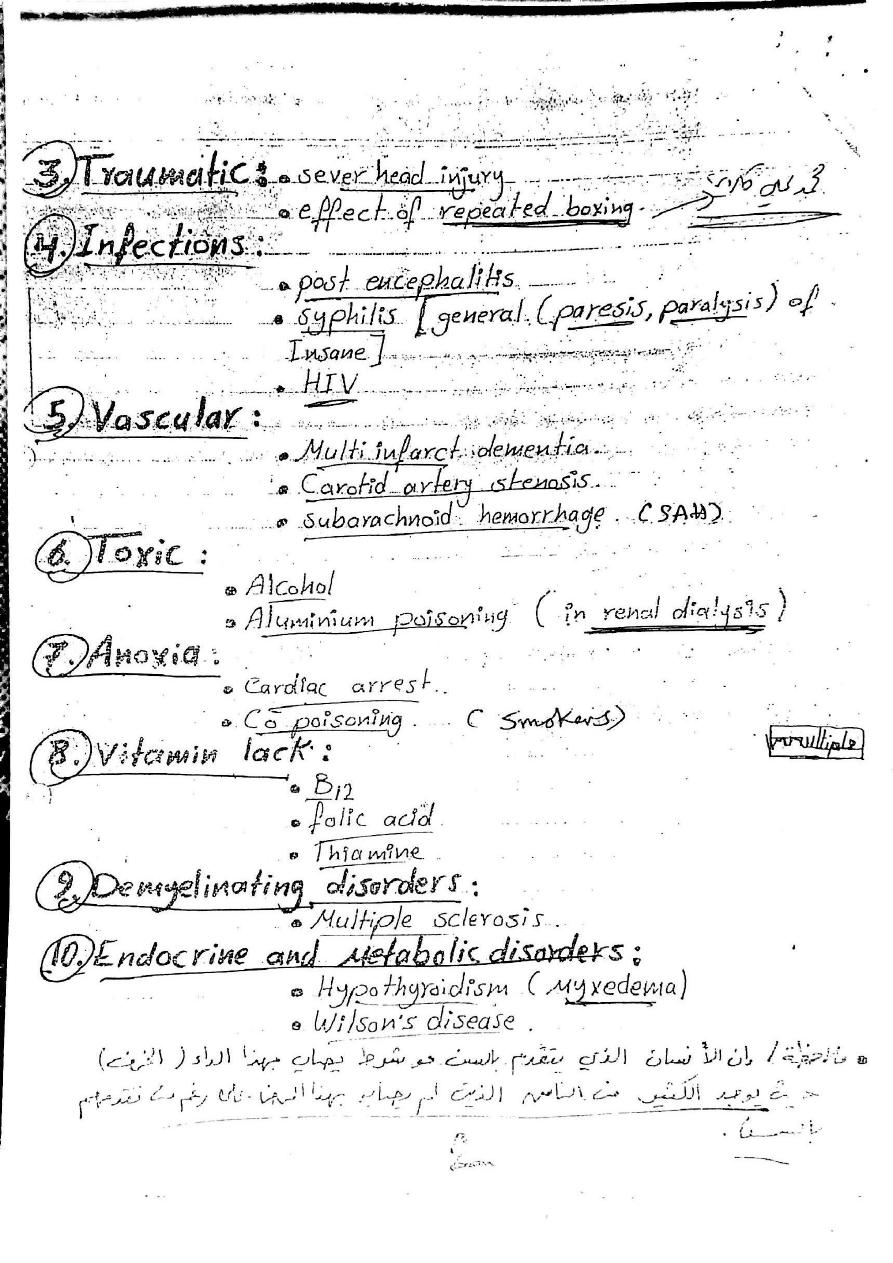 3. Traumatic: • sever head injury
• effect of repeated boxing
4. Infections:
• post encephalitis
• syphilis [general (paresis, paralysis) of
Insane]
• HIV
5. Vascular:
• Multi infarct dementia.
• Carotid artery stenosis.
• subarachnoid hemorrhage. (SAH)
6. Toxic:
• Alcohol
• Aluminium poisoning (in renal dialysis)
7. Anoxia:
• Cardiac arrest.
• Co poisoning. (Smokers)
8. Vitamin lack:
multiple
• B12
• folic acid
• Thiamine
9. Demyelinating disorders:
• Multiple sclerosis.
10. Endocrine and Metabolic disorders:
• Hypothyroidism (Myxedema)
• Wilson's disease.
• ملاحظة / إن الأنسان الذي يتقدم بالسن هو شرط يصاب بهذا الداء (الخرف)
حيث يوجد الكثير من الناس الذين لم يصابو بهذا رغم تقدمهم
بالسن.